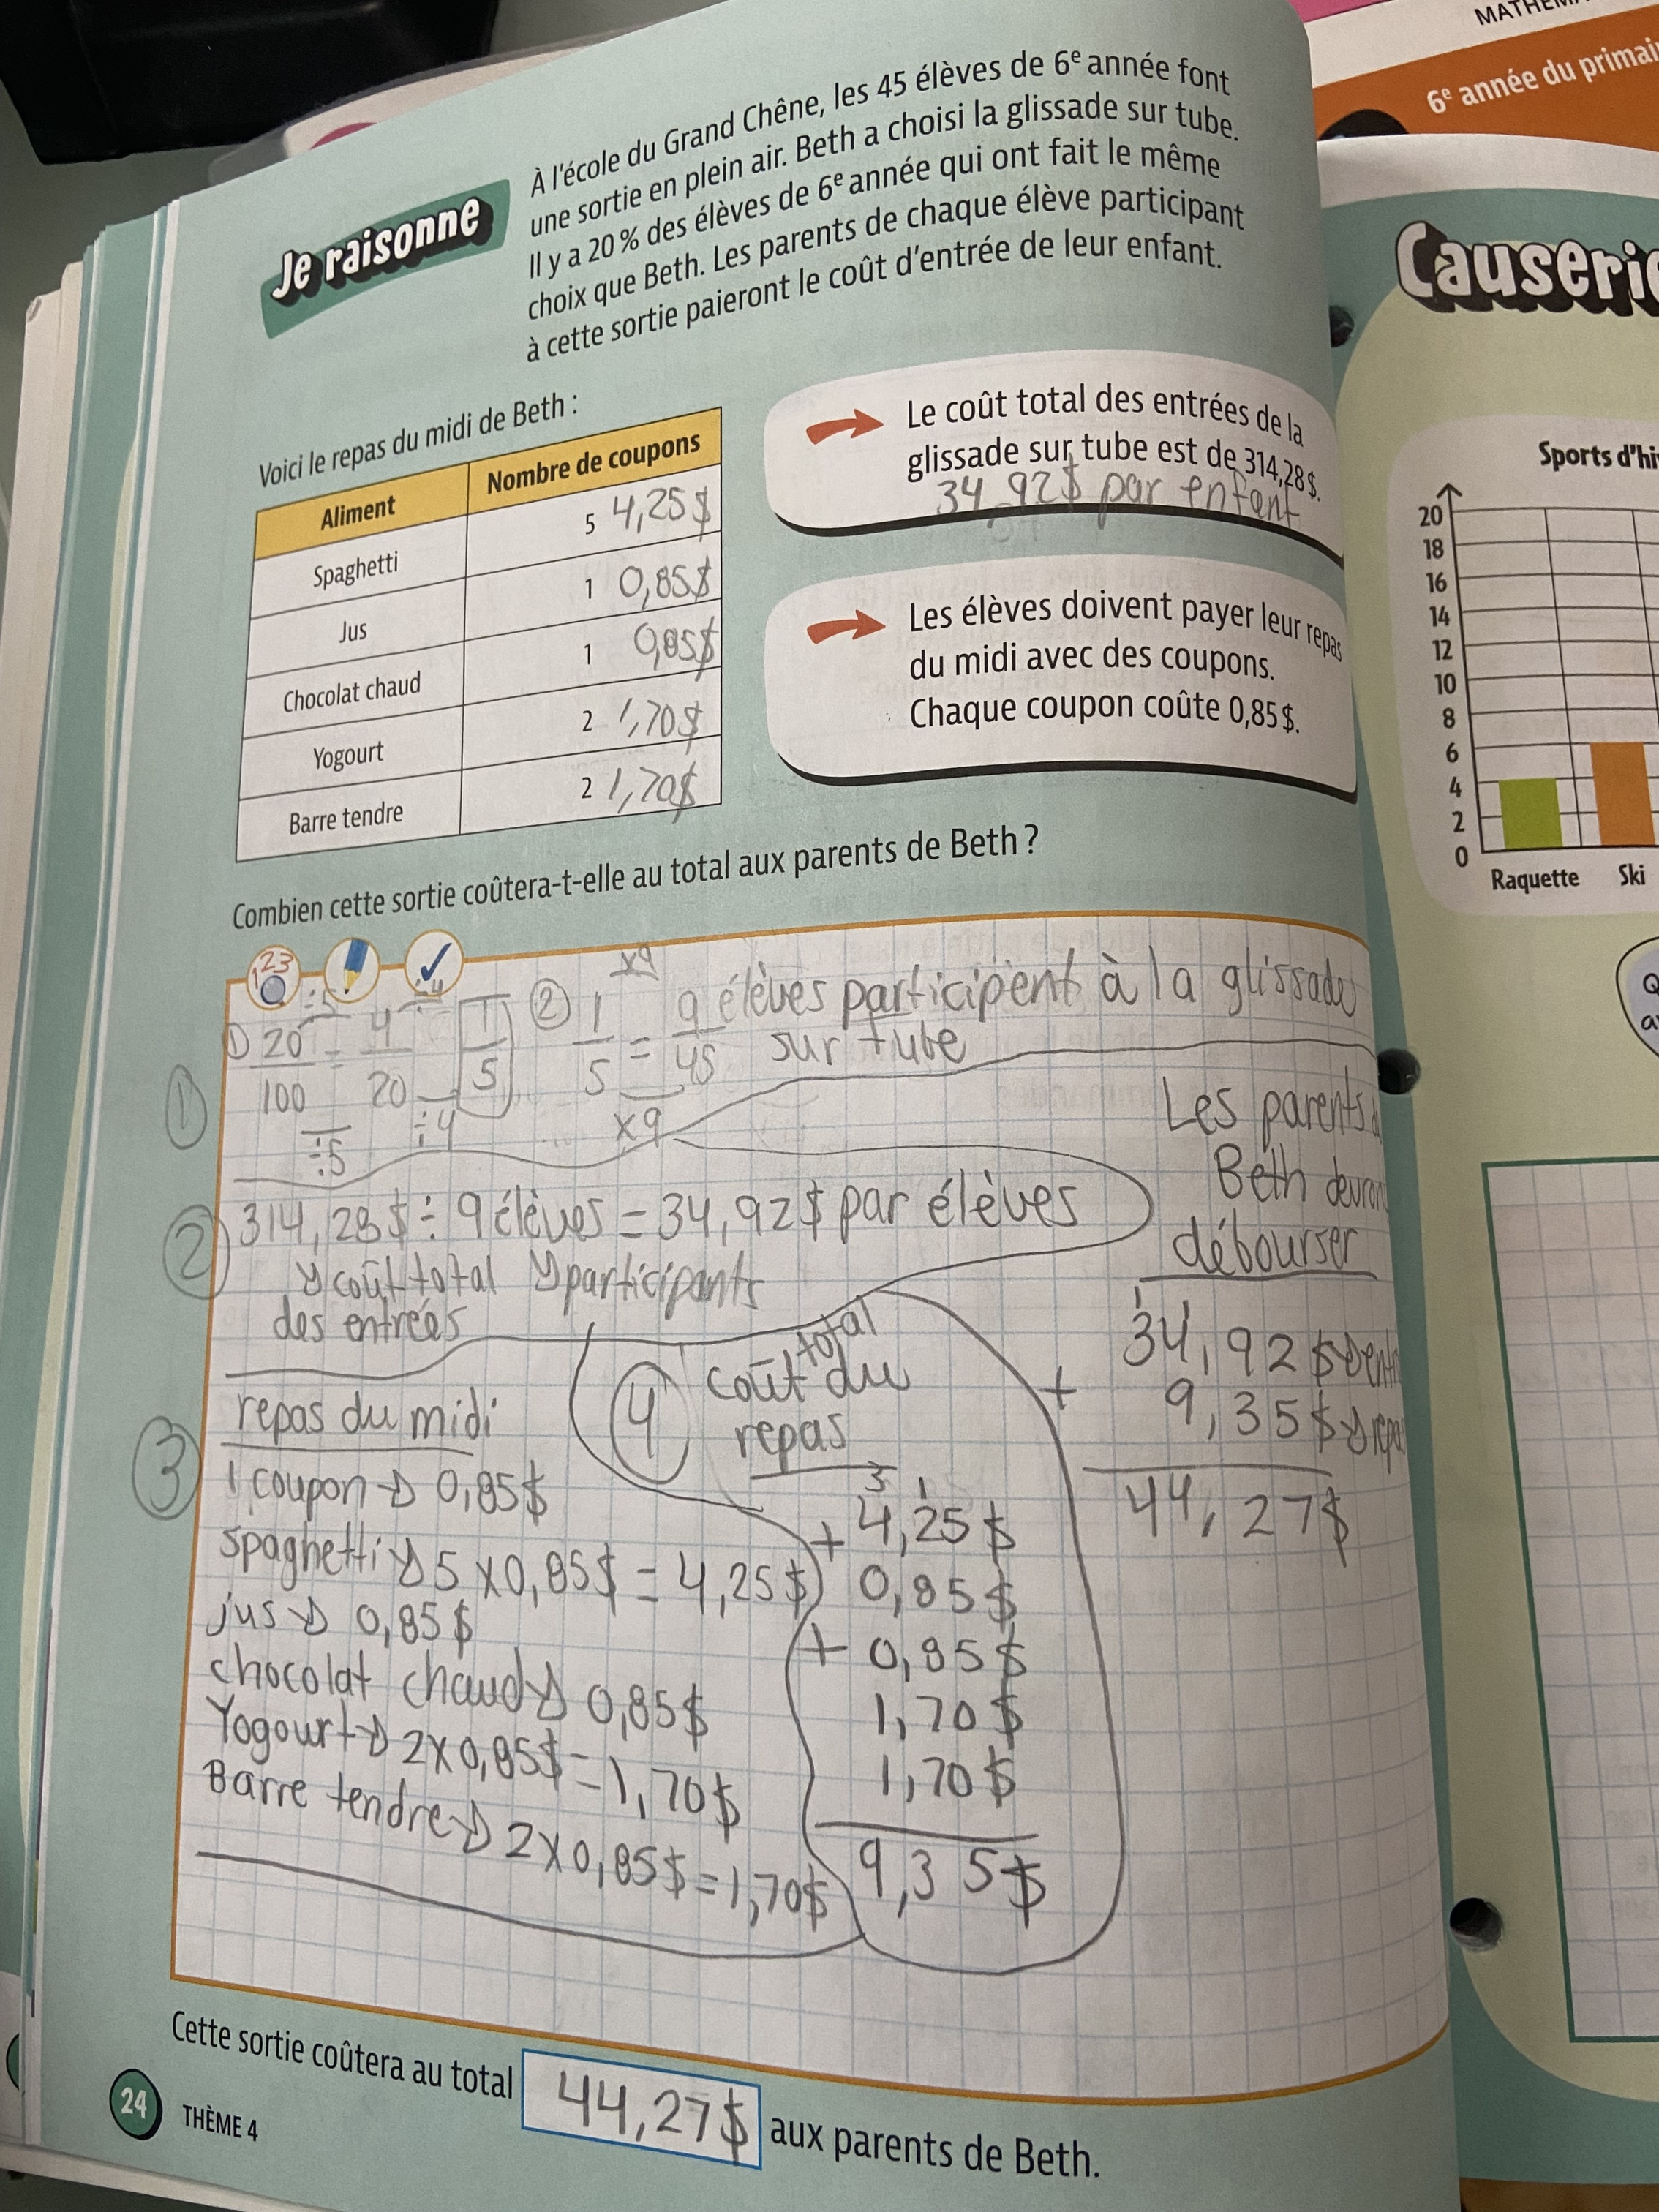 MATHÉMA
6e année du primai
Je raisonne
À l'école du Grand Chêne, les 45 élèves de 6e année font
une sortie en plein air. Beth a choisi la glissade sur tube.
Il y a 20 % des élèves de 6e année qui ont fait le même
choix que Beth. Les parents de chaque élève participant
à cette sortie paieront le coût d'entrée de leur enfant.
Voici le repas du midi de Beth :
Aliment Nombre de coupons
Spaghetti 5 4,25$
Jus 1 0,85$
Chocolat chaud 1 0,85$
Yogourt 2 1,70$
Barre tendre 2 1,70$
Le coût total des entrées de la
glissade sur tube est de 314,28 $.
34,92$ par enfant
Les élèves doivent payer leur repas
du midi avec des coupons.
Chaque coupon coûte 0,85 $.
Combien cette sortie coûtera-t-elle au total aux parents de Beth ?
123
÷5 ÷4 x9
① 20/100 = 4/20 = 1/5 ② 1/5 = 9/45 élèves participent à la glissade
sur tube
÷5 ÷4 x9
①
② 314,28$ ÷ 9 élèves = 34,92$ par élèves
coût total participants
des entrées
③ repas du midi
1 coupon → 0,85$
spaghetti → 5 x 0,85$ = 4,25$
jus → 0,85$
chocolat chaud → 0,85$
Yogourt → 2 x 0,85$ = 1,70$
Barre tendre → 2 x 0,85$ = 1,70$
④ coût total du
repas
3 1
+ 4,25$
0,85$
+ 0,85$
1,70$
1,70$
9,35$
Les parents
Beth
débourser
1 1
34,92$
+ 9,35$
44,27$
Cette sortie coûtera au total 44,27$ aux parents de Beth.
24 THÈME 4
Causerie
Sports d'hi
20
18
16
14
12
10
8
6
4
2
0
Raquette Ski
Q
a